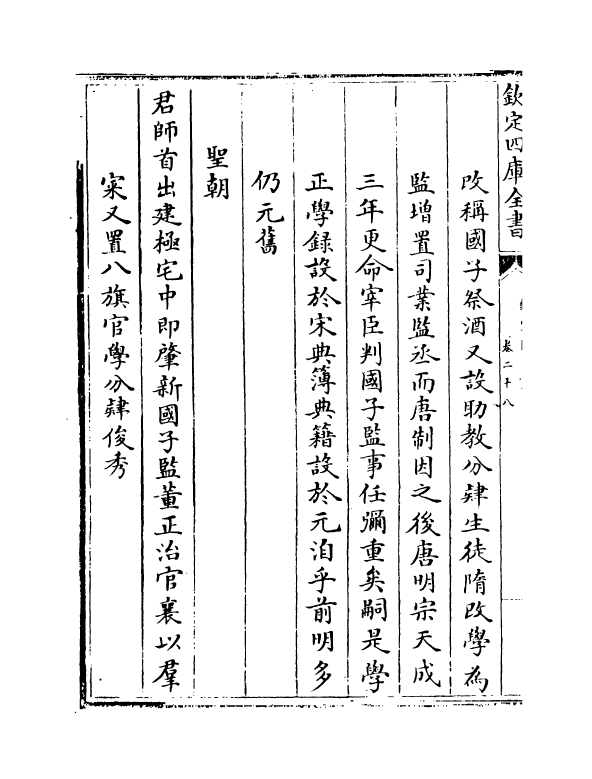 欽定四庫全書
卷二十八
改稱國子祭酒又設助教分肄生徒隋改學為
監增置司業監丞而唐制因之後唐明宗天成
三年更命宰臣判國子監事任彌重矣嗣是學
正學録設於宋典簿典籍設於元洎乎前明多
仍元舊
聖朝
君師首出建極宅中即肇新國子監董正治官襄以羣
寀又置八旗官學分肄俊秀